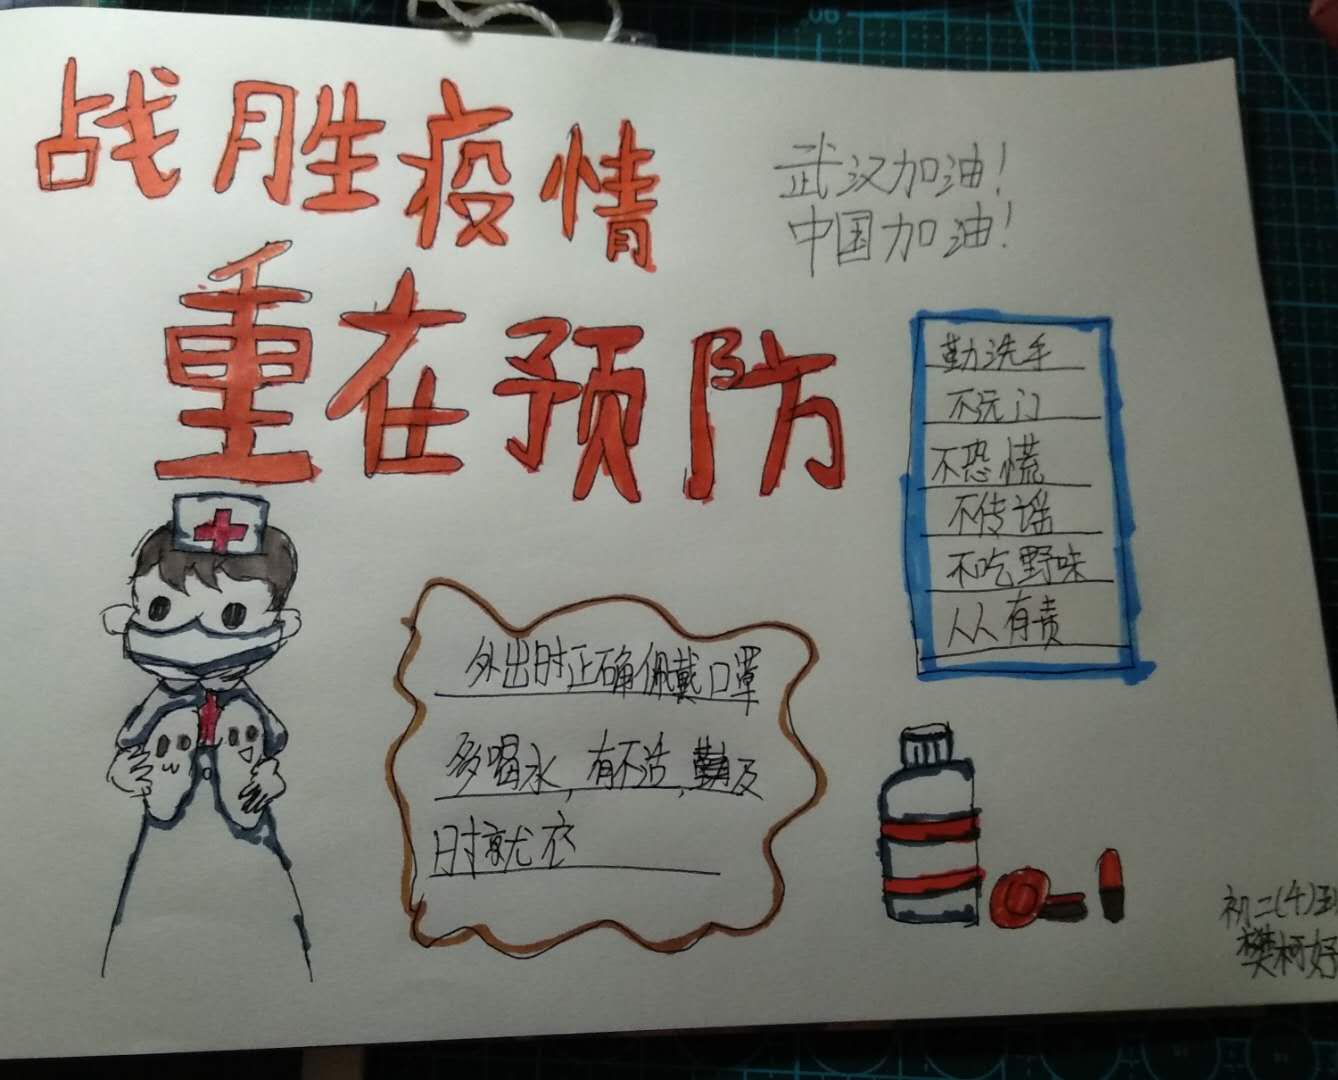 战胜疫情
重在预防
武汉加油!
中国加油!
勤洗手
不远门
不恐慌
不传谣
不吃野味
人人有责
外出时正确佩戴口罩
多喝水,有不活,及
时就衣
初二(4)班
樊柯妤